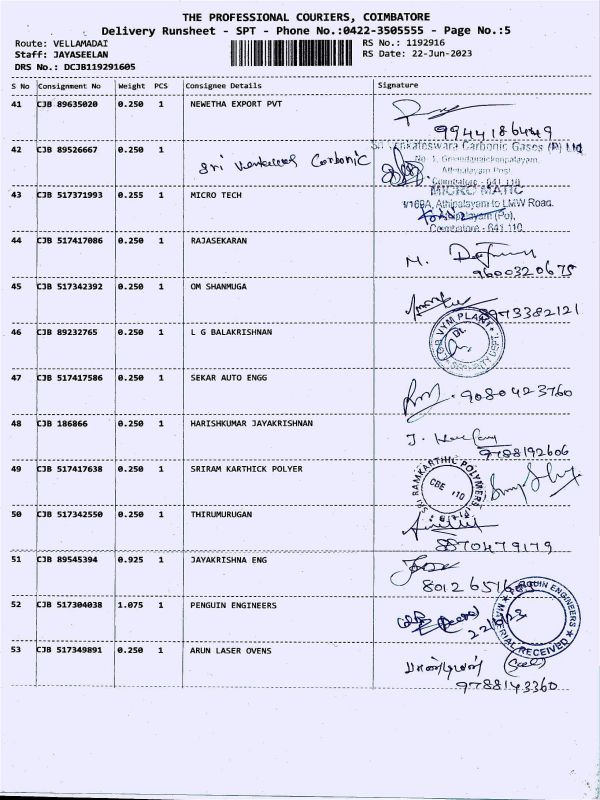 THE PROFESSIONAL COURIERS, COIMBATORE
Delivery Runsheet - SPT - Phone No.:0422-3505555 - Page No.:5
Route: VELLAMADAI RS No.: 1192916
Staff: JAYASEELAN RS Date: 22-Jun-2023
DRS No.: DCJB119291605
S No Consignment No Weight PCS Consignee Details Signature
41 CJB 89635020 0.250 1 NEWETHA EXPORT PVT
9944186449
42 CJB 89526667 0.250 1 Sri Venkateswara Carbonic Gases (P) Ltd
Sri Carbonic
Coimbatore - 641 110
43 CJB 517371993 0.255 1 MICRO TECH MICRO MATIC
Athipalayam to LMW Road,
Athipalayam (Po),
Coimbatore - 641 110
44 CJB 517417086 0.250 1 RAJASEKARAN
M.
9600320675
45 CJB 517342392 0.250 1 OM SHANMUGA
9973382121
46 CJB 89232765 0.250 1 L G BALAKRISHNAN
VYM PLANT
SECURITY DEPT.
47 CJB 517417586 0.250 1 SEKAR AUTO ENGG 9080423760
48 CJB 186866 0.250 1 HARISHKUMAR JAYAKRISHNAN
J.
9788192606
49 CJB 517417638 0.250 1 SRIRAM KARTHICK POLYER
SRI RAMKARTHIC POLYMERS
CBE 110
50 CJB 517342550 0.250 1 THIRUMURUGAN
8870479179
51 CJB 89545394 0.925 1 JAYAKRISHNA ENG
52 CJB 517304038 1.075 1 PENGUIN ENGINEERS
PENGUIN ENGINEERS
MATERIAL RECEIVED
53 CJB 517349891 0.250 1 ARUN LASER OVENS
பாண்டியன்
9788143360